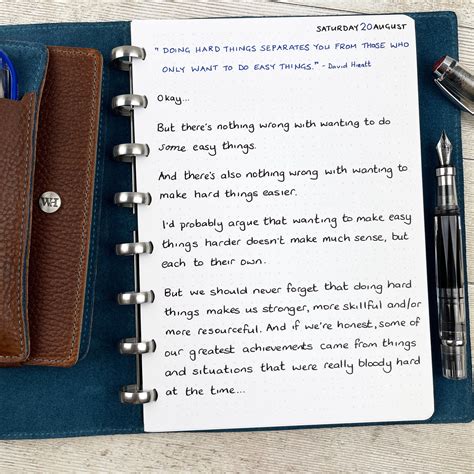 SATURDAY 20 AUGUST
"DOING HARD THINGS SEPARATES YOU FROM THOSE WHO
ONLY WANT TO DO EASY THINGS." - David Hieatt
Okay...
But there's nothing wrong with wanting to do
some easy things.
And there's also nothing wrong with wanting to
make hard things easier.
I'd probably argue that wanting to make easy
things harder doesn't make much sense, but
each to their own.
But we should never forget that doing hard
things makes us stronger, more skillful and/or
more resourceful. And if we're honest, some of
our greatest achievements came from things
and situations that were really bloody hard
at the time...